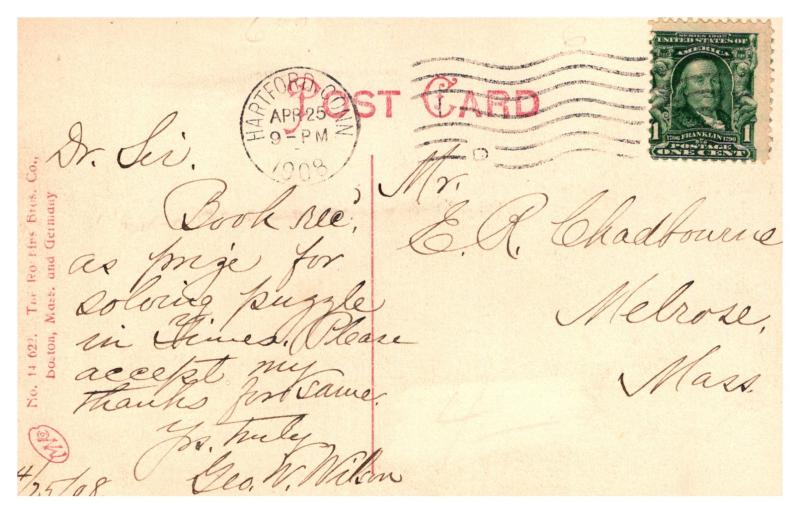 POST CARD
HARTFORD, CONN.
APR 25
9-PM
1908
SERIES 1902
UNITED STATES OF
AMERICA
1706 FRANKLIN 1790
1 1
POSTAGE
ONE CENT
No. 14 622. The Robbins Bros. Co.,
Boston, Mass. and Germany
Dr. Sir.
Book rec'd
as prize for
solving puzzle
in Times. Please
accept my
thanks for same.
Yrs. truly
Geo. W. Wilson
4/25/08
Mr.
E. R. Chadbourne
Melrose,
Mass.